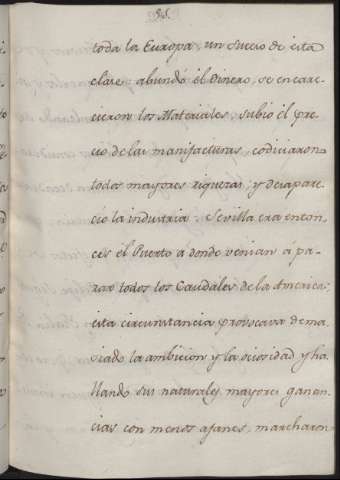 56.
toda la Europa, un suceso de esta
clase abundó el Dinero, se encare-
cieron los Materiales subio él pre-
cio de las manifacturas, codiciaron
todos mayores riquezas; y desapare-
cio la industria. Sevilla era enton-
ces él Puerto á donde venian á pa-
rar todos los Caudales de la America;
esta circunstancia provocava dema-
siado la ambicion y la ociosidad y ha-
llando sus naturales mayores ganan-
cias con menos afanes, marcharon